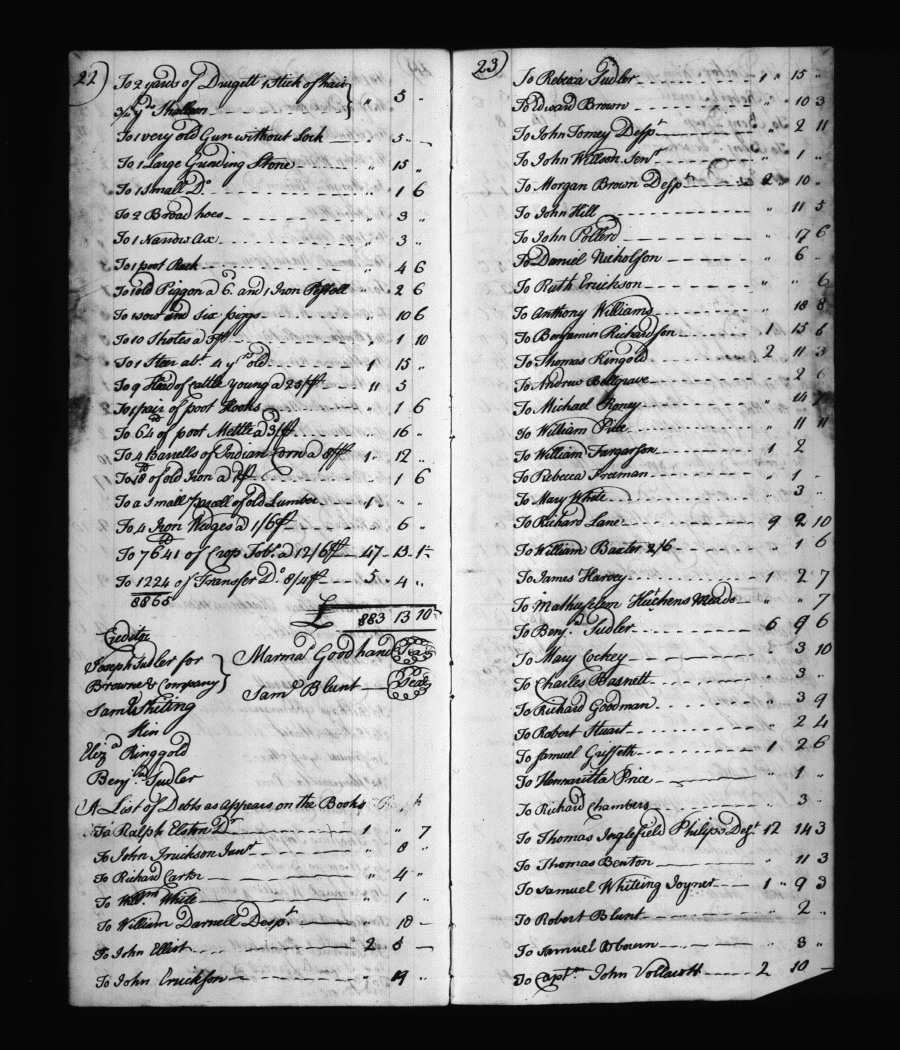 22
To 2 yards of Drugett 1 Stick of hair
3½ yds Shalloon } " 5 "
To 1 very old Gun without Lock " 5 "
To 1 Large Grinding Stone " 15 "
To 1 Small Do " 1 6
To 2 Broad hoes " 3 "
To 1 Narrow Ax " 3 "
To 1 poot Rack " 4 6
To 1 old Piggon a 6. and 1 Iron Pestell " 2 6
To 1 sow and Six piggs " 10 6
To 10 Shotes a 3/ " 1 10
To 1 Steer abt. 4 yrs old 1 15 "
To 9 Head of cattle young a 25/ 11 5
To 1 pair of poot Hooks " 1 6
To 64 lb of poot Mettle a 3/ " 16 "
To 4 Barrells of Indian Corn a 8/ 1 12 "
To 18 lb of old Iron a 1/ " 1 6
To a Small parcell of old Lumber 1 " "
To 4 Iron Wedges a 1/6 " 6 "
To 7641 lb of Crop Tobo a 12/6 47 13 1½
To 1224 of Transfer Do 8/4 5 4 "
8865
£ 883 13 10
Creditrs
Joseph Sudler for
Browne & Company } Marma Goodhand Seal
Saml Blunt Seal
Sam Whiting
Kin
Eliza Ringgold
Benja Sudler
A List of Debts as Appears on the Books
To Ralph Elston Dr 1 " 7
To John Erickson Junr " 8 "
To Richard Carter " 4 "
To Willm White " 1 "
To William Darnell Despt 18
To John Elliot 2 8
To John Erickson " 19 "
23
To Rebeca Sudler " 15 "
To Edward Brown " 10 3
To John Tomey Despt " 2 11
To John Willson Senr " 1 "
To Morgan Brown Despt 2 10 "
To John Hill " 11 5
To John Pollerd " 17 6
To Daniel Nicholson " 6 "
To Ruth Erickson " " 6
To Anthony Williams " 18 8
To Benjamin Richardson 1 15 6
To Thomas Ringold 2 11 3
To Andrew Bellgrave " 2 6
To Michael Roney " 14
To William Price " 11 11
To William Fargarson 1 2
To Rebecca Freeman " 1 "
To Mary White " 3 "
To Richard Lane 9 2 10
To William Baxter 2/6 " 1 6
To James Harvey 1 2 7
To Mathuselem Huchens Meads " " 7
To Benja. Sudler 6 9 6
To Mary Cockey " 3 10
To Charles Basnett " 3 "
To Richard Goodman " 3 9
To Robert Stuart " 2 4
To Samuel Griffeth 1 2 6
To Hennarietta Price " 1 "
To Richard Chambers " 3 "
To Thomas Inglefield Philips Dest. 12 14 3
To Thomas Benton " 11 3
To Samuel Whiteing Joyner 1 9 3
To Robert Blunt " 2 "
To Samuel Osbourn " 3 "
To Captn John Vollcott 2 10